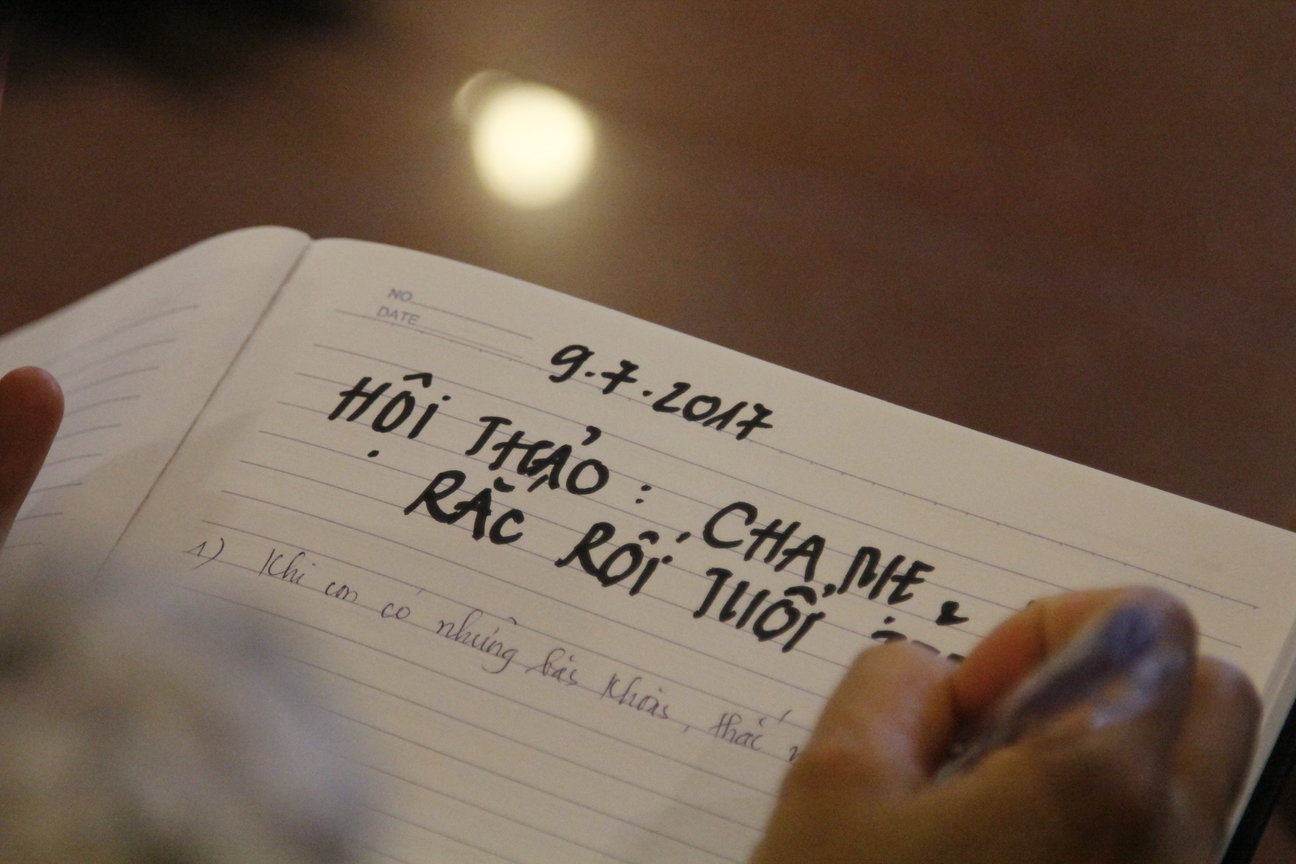 NO
DATE
9.7.2017
HỘI THẢO: CHA MẸ &
RẮC RỐI TUỔI
1) Khi con có những băn khoăn, thắc